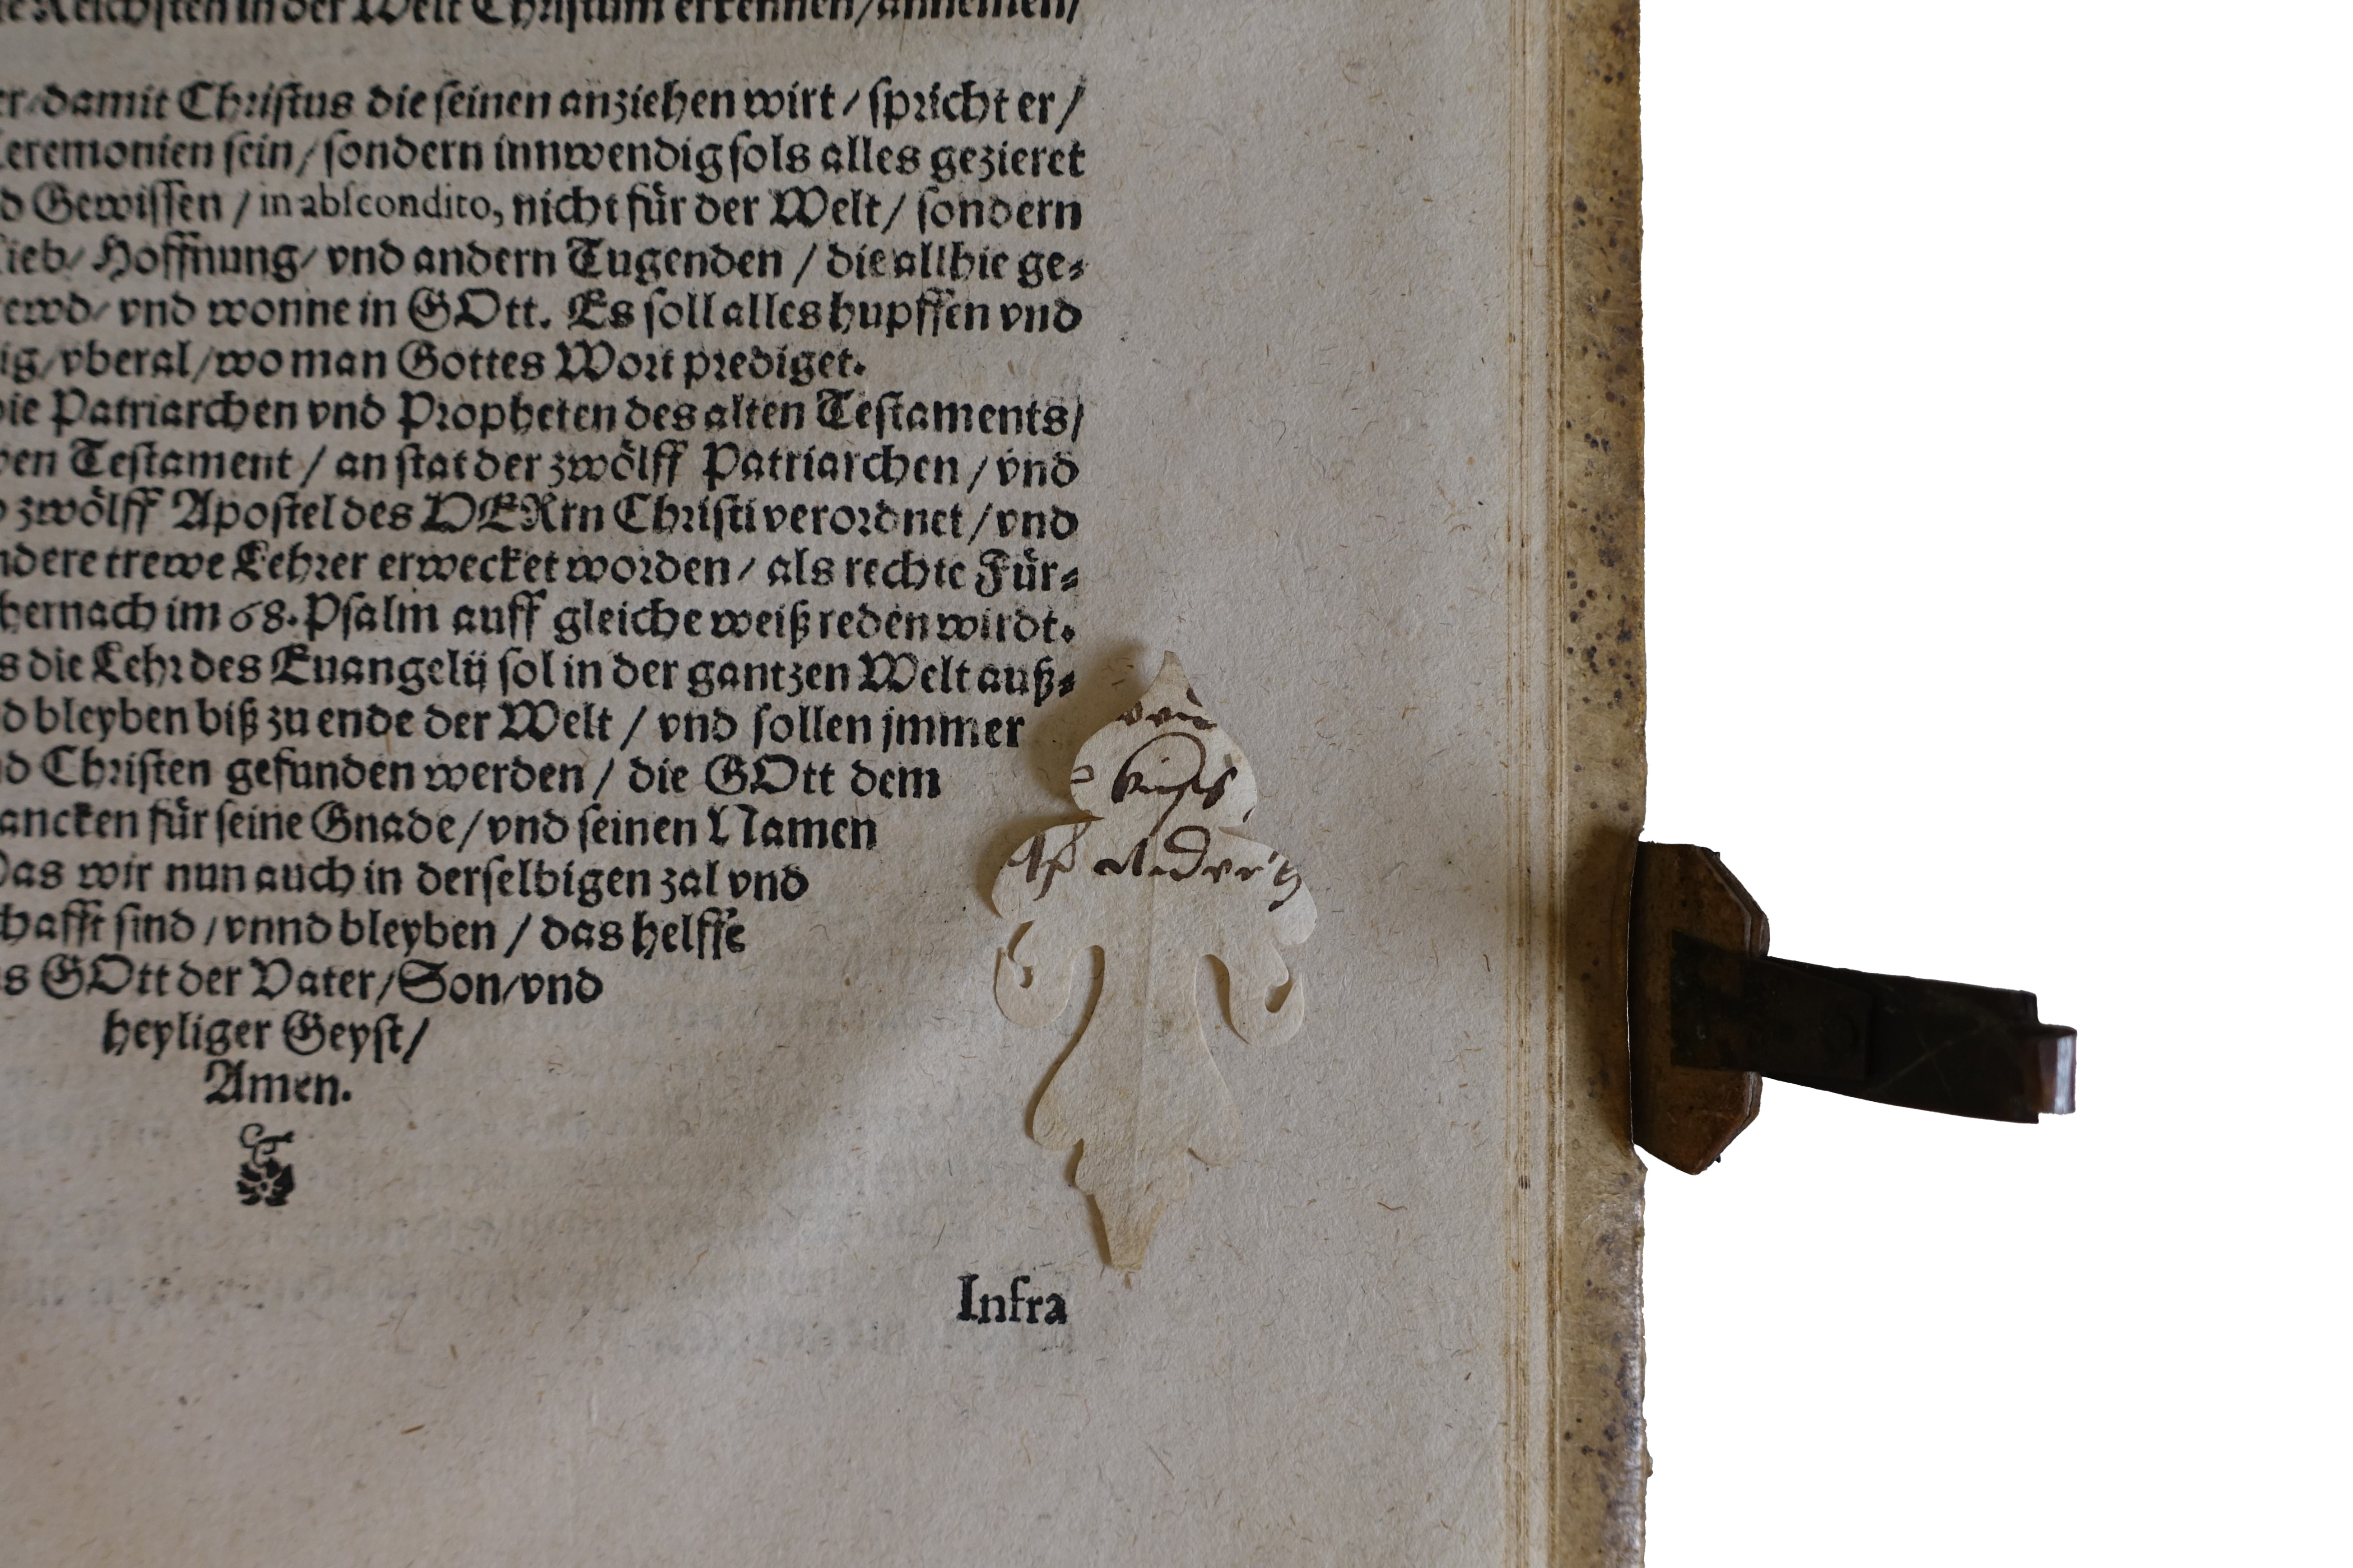 Reichsten in der Welt Christum erkennen/annemen/
damit Christus die seinen anziehen wirt / spricht er /
Ceremonien sein / sondern innwendig sols alles gezieret
Gewissen / in abscondito, nicht für der Welt / sondern
Lieb / Hoffnung / vnd andern Tugenden / die allhie ge⸗
vnd wonne in GOtt. Es soll alles hupffen vnd
vberal / wo man Gottes Wort prediget.
die Patriarchen vnd Propheten des alten Testaments /
Testament / an stat der zwölff Patriarchen / vnd
zwölff Apostel des HERrn Christi verordnet / vnd
andere trewe Lehrer erwecket worden / als rechte Für⸗
hernach im 68. Psalm auff gleiche weiß reden wirdt.
die Lehr des Euangelij sol in der gantzen Welt auß⸗
bleyben biß zu ende der Welt / vnd sollen jmmer
Christen gefunden werden / die GOtt dem
dancken für seine Gnade / vnd seinen Namen
Das wir nun auch in derselbigen zal vnd
sind / vnnd bleyben / das helffe
GOtt der Vater / Son / vnd
heyliger Geyst /
Amen.
Infra